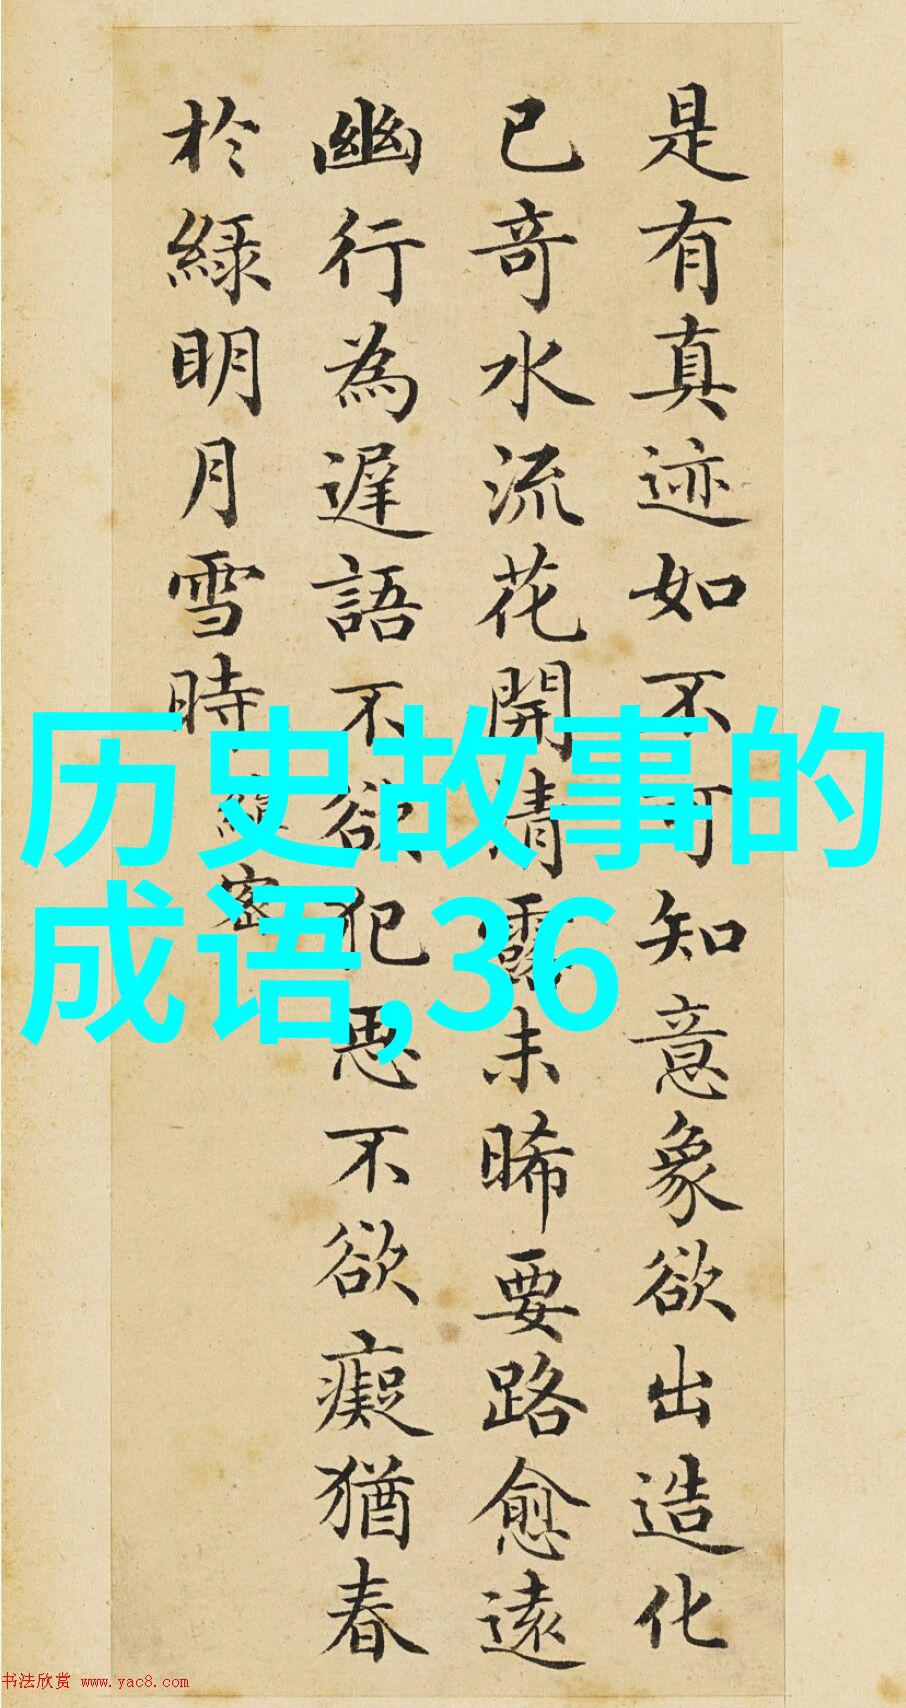 是有真迹如不可知意象欲出造化
已奇水流花開清露未晞要路愈遠
幽行為遲語不欲犯思不欲癡猶春
於綠明月雪時 縝密
历史故事的
成语,36
书法欣赏 www.yac8.com